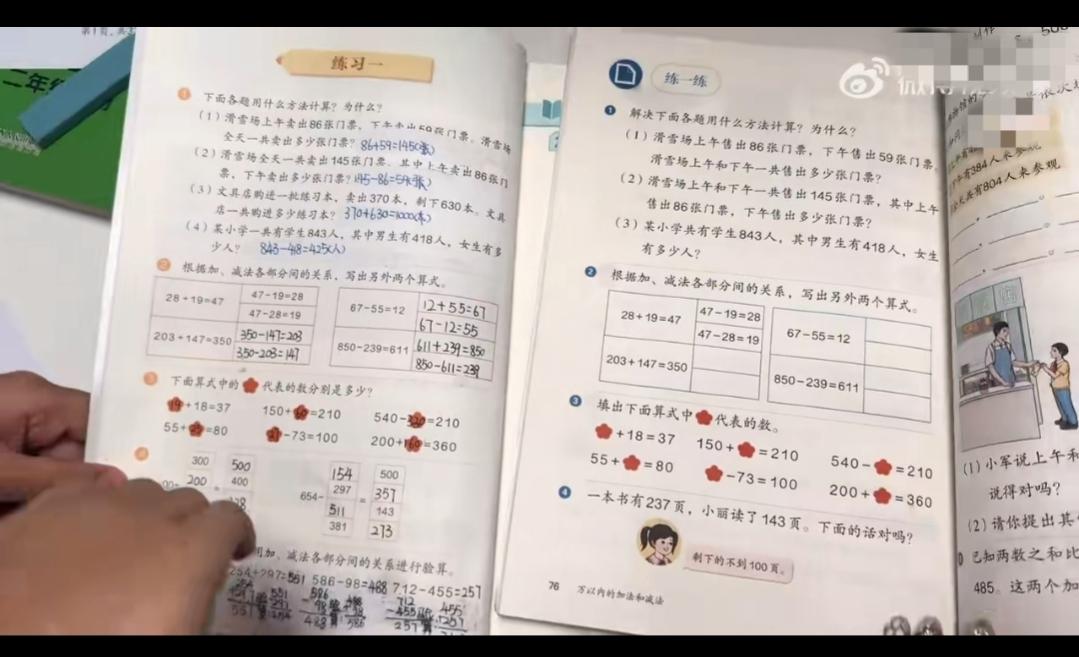 二年级
练习一
1 下面各题用什么方法计算？为什么？
（1）滑雪场上午卖出86张门票，下午卖出59张门票。滑雪场
全天一共卖出多少张门票？86+59=145(张)
（2）滑雪场全天一共卖出145张门票，其中上午卖出86张门
票，下午卖出多少张门票？145-86=59(张)
（3）文具店购进一批练习本，卖出370本，剩下630本。文具
店一共购进多少练习本？370+630=1000(本)
（4）某小学一共有学生843人，其中男生有418人，女生有多
少人？843-418=425(人)
2 根据加、减法各部分间的关系，写出另外两个算式。
28+19=47 47-19=28
47-28=19
203+147=350 350-147=203
350-203=147
67-55=12 12+55=67
67-12=55
850-239=611 611+239=850
850-611=239
3 下面算式中的 代表的数分别是多少？
19+18=37 150+60=210 540-320=210
55+ =80 -73=100 200+160=360
4
300 500
200 400
654-
154 500
297 = 357
511 143
381 273
用加、减法各部分间的关系进行验算。
254+297=551 586-98=488 712-455=257
练一练
1 解决下面各题用什么方法计算？为什么？
（1）滑雪场上午售出86张门票，下午售出59张门票。
滑雪场上午和下午一共售出多少张门票？
（2）滑雪场上午和下午一共售出145张门票，其中上午
售出86张门票，下午售出多少张门票？
（3）某小学共有学生843人，其中男生有418人，女生
有多少人？
2 根据加、减法各部分间的关系，写出另外两个算式。
28+19=47 47-19=28
47-28=19
203+147=350
67-55=12
850-239=611
3 填出下面算式中 代表的数。
+18=37 150+ =210 540- =210
55+ =80 -73=100 200+ =360
4 一本书有237页，小丽读了143页。下面的话对吗？
剩下的不到100页。
76 万以内的加法和减法
有384人来参观
全天共有804人来参观
（1）小军说上午和
说得对吗？
（2）请你提出其
已知两数之和比
485。这两个加